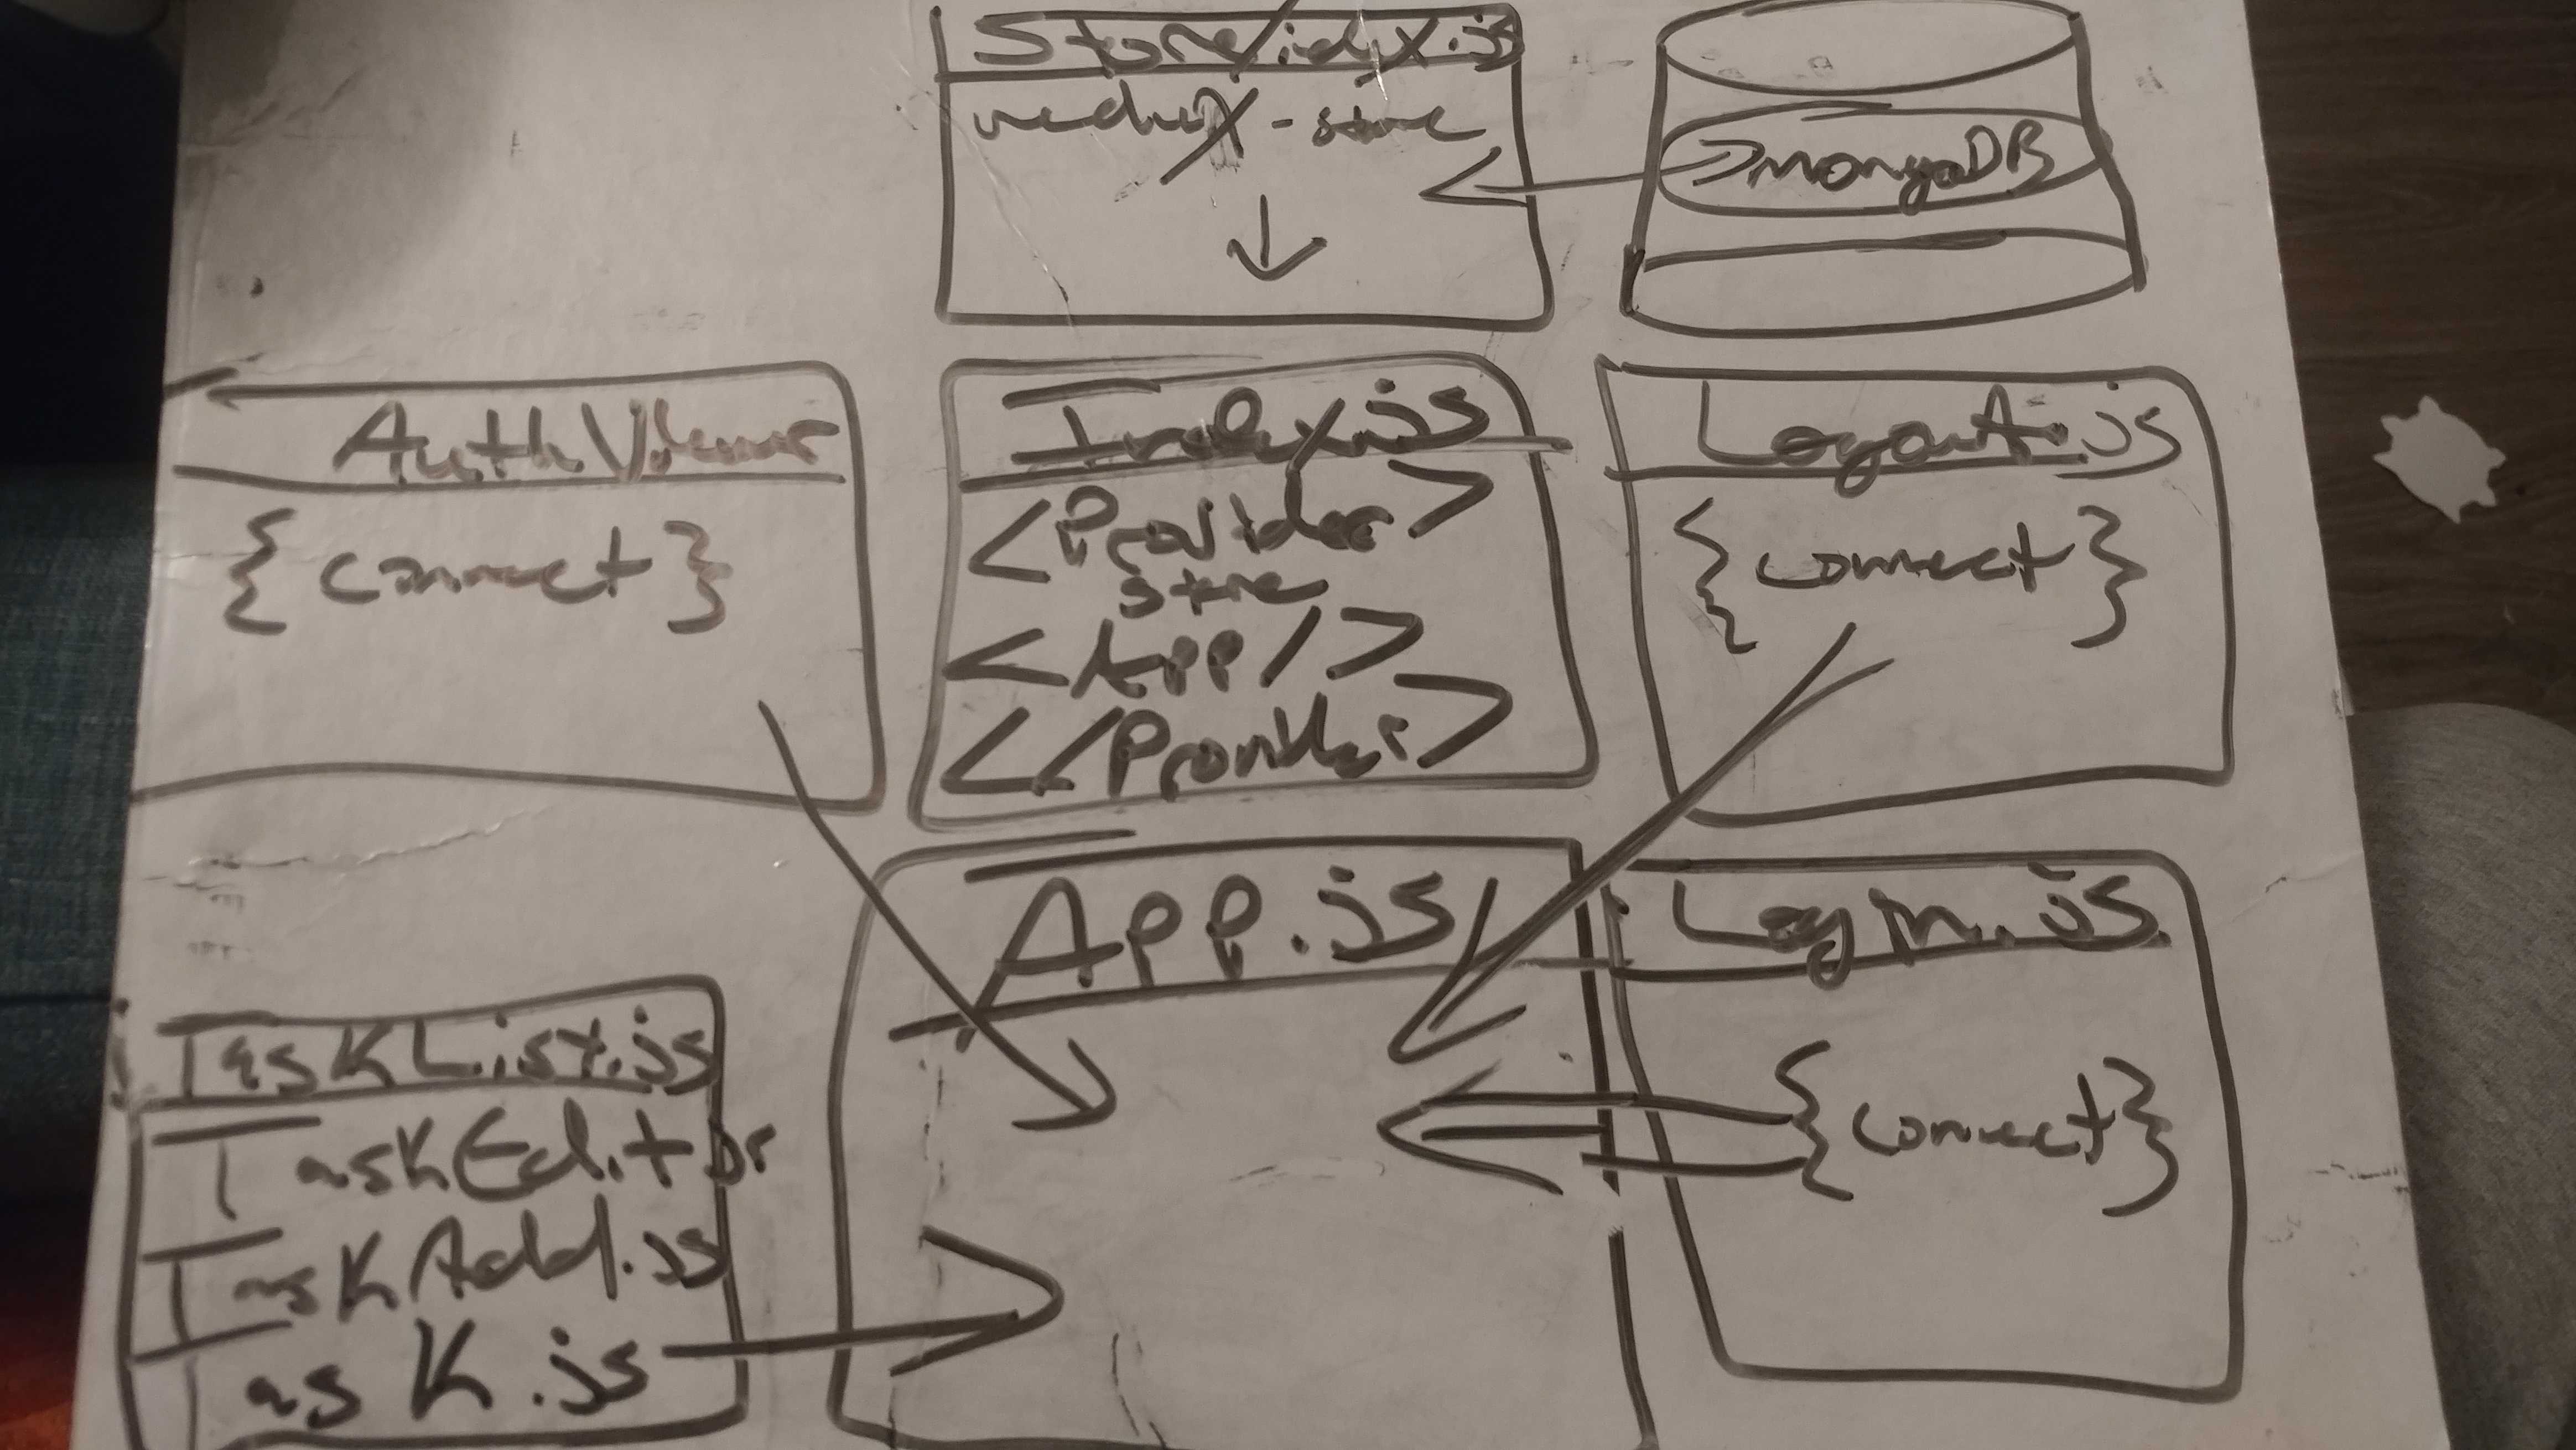 Store/idx.js
redux-store
mongoDB
Auth Viewer
{connect}
Index.js
<Provider>
store
<App/>
</Provider>
Layout.js
{connect}
App.js
Login.js
{connect}
TaskList.js
TaskEditor
TaskAdd.js
Task.js